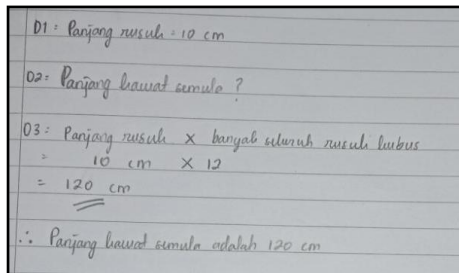 D1 : Panjang rusuk = 10 cm
D2 = Panjang kawat semula ?
D3 : Panjang rusuk × banyak seluruh rusuk kubus
= 10 cm × 12
= 120 cm
∴ Panjang kawat semula adalah 120 cm